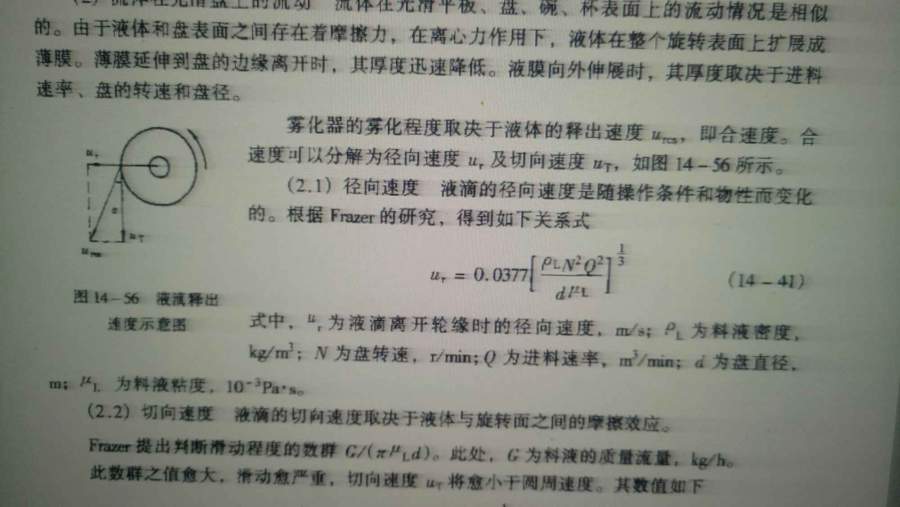 (2) 流体在光滑盘上的流动 流体在光滑平板、盘、碗、杯表面上的流动情况是相似
的。由于液体和盘表面之间存在着摩擦力，在离心力作用下，液体在整个旋转表面上扩展成
薄膜。薄膜延伸到盘的边缘离开时，其厚度迅速降低。液膜向外伸展时，其厚度取决于进料
速率、盘的转速和盘径。
雾化器的雾化程度取决于液体的释出速度 u_res，即合速度。合
速度可以分解为径向速度 u_r 及切向速度 u_T，如图 14-56 所示。
(2.1) 径向速度 液滴的径向速度是随操作条件和物性而变化
的。根据 Frazer 的研究，得到如下关系式
u_r = 0.0377[ρ_L N²Q² / dμ_L]^(1/3) (14-41)
u_r
u_T
u_res
图 14-56 液滴释出
速度示意图
式中，u_r 为液滴离开轮缘时的径向速度，m/s；ρ_L 为料液密度，
kg/m³；N 为盘转速，r/min；Q 为进料速率，m³/min；d 为盘直径，
m；μ_L 为料液粘度，10⁻³Pa·s。
(2.2) 切向速度 液滴的切向速度取决于液体与旋转面之间的摩擦效应。
Frazer 提出判断滑动程度的数群 G/(πμ_L d)。此处，G 为料液的质量流量，kg/h。
此数群之值愈大，滑动愈严重，切向速度 u_T 将愈小于圆周速度。其数值如下